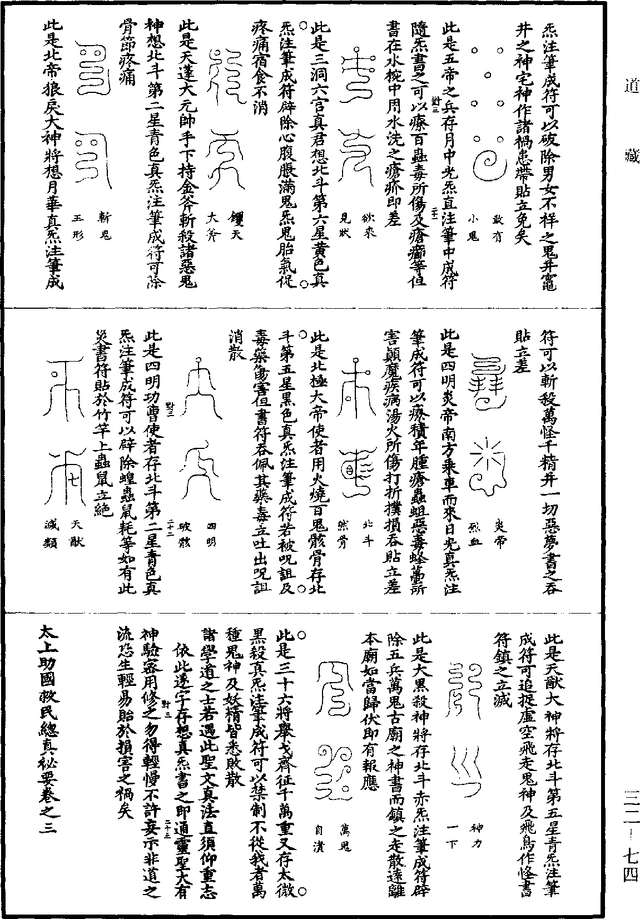 道藏
炁注筆成符可以破除男女不祥之鬼并竈
井之神宅神作諸禍患帶貼立免矣
敢有
小鬼
此是五帝之兵存月中光炁直注筆中成符
隨炁書之可以療百蟲毒所傷及瘡癤等但
書在水椀中用水洗之瘡疥即差
欲來
見狀
此是三洞六宮真君想北斗第六星黃色真
炁注筆成符辟除心腹脹滿鬼炁鬼胎氣促
疼痛宿食不消
钁天
大斧
此是天蓬大元帥手下持金斧斬殺諸惡鬼
神想北斗第二星青色真炁注筆成符可除
骨節疼痛
斬鬼
五形
此是北帝狼戾大神將想月華真炁注筆成
符可以斬殺萬怪千精并一切惡夢書之吞
貼立差
炎帝
烈血
此是四明炎帝南方乘車而來日光真炁注
筆成符可以療積年腫瘡蟲蛆惡毒蜂蠆所
害顛魔疾病湯火所傷打折撲損吞貼立差
北斗
然骨
此是北極大帝使者用火燒百鬼骸骨存北
斗第五星黑色真炁注筆成符若被呪詛及
毒藥傷害但書符吞佩其藥毒立吐出呪詛
消散
四明
破骸
此是四明功曹使者存北斗第二星青色真
炁注筆成符可以辟除蝗蟲鼠耗等如有此
災書符貼於竹竿上蟲鼠立絕
天猷
滅類
此是天猷大神將存北斗第五星青炁注筆
成符可追捉虛空飛走鬼神及飛鳥作怪書
符鎮之立滅
神刀
一下
此是大黑殺神將存北斗赤炁注筆成符辟
除五兵萬鬼古廟之神書而鎮之走散遠離
本廟如當歸伏即有報應
萬鬼
自潰
此是三十六將舉戈齊征千萬重又存太微
黑殺真炁注筆成符可以禁制不從我者萬
種鬼神及妖精皆悉敗散
諸學道之士若遇此聖文真法直須仰重志
依此逐字存想真炁書之即通靈聖大有
神驗審用修之勿得輕慢不許妄示非道之
流恐生輕易貽於損害之禍矣
太上助國救民總真祕要卷之三
三二－七四